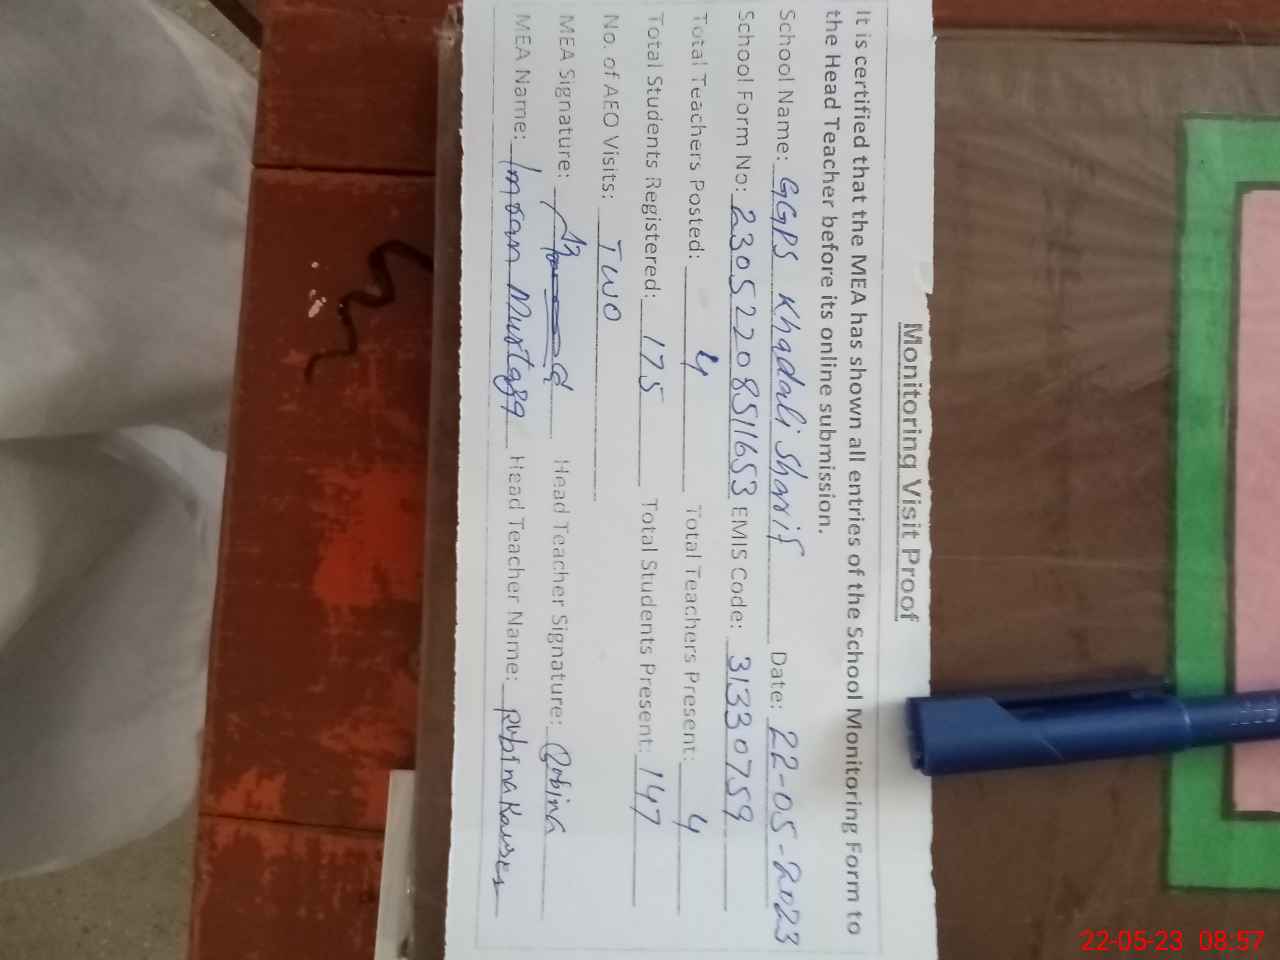 Monitoring Visit Proof
It is certified that the MEA has shown all entries of the School Monitoring Form to
the Head Teacher before its online submission.
School Name: GGPS Khadali Sharif Date: 22-05-2023
School Form No: 23052208511653 EMIS Code: 31330759
Total Teachers Posted: 4 Total Teachers Present: 4
Total Students Registered: 175 Total Students Present: 147
No. of AEO Visits: TWO
MEA Signature: Head Teacher Signature: Robina
MEA Name: Imran Mustafa Head Teacher Name: Rubina Kauser
22-05-23 08:57